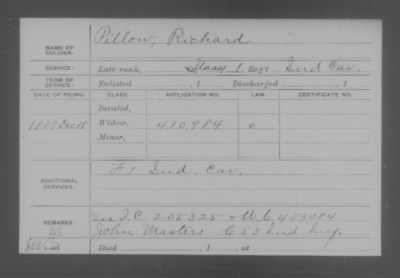 NAME OF SOLDIER: Pillow, Richard
SERVICE: Late rank, 1 Reg't Ind Cav.
TERM OF SERVICE: Enlisted , 1 Discharged , 1
DATE OF FILING. CLASS. APPLICATION NO. LAW. CERTIFICATE NO.
Invalid,
1889 Dec 18 Widow, 410,984
Minor,
ADDITIONAL SERVICES: F 1 Ind. Cav.
REMARKS: See I.C. 205325 & W.C. 453084
John Masters - C 53 Ind Inf.
Died , 1 , at